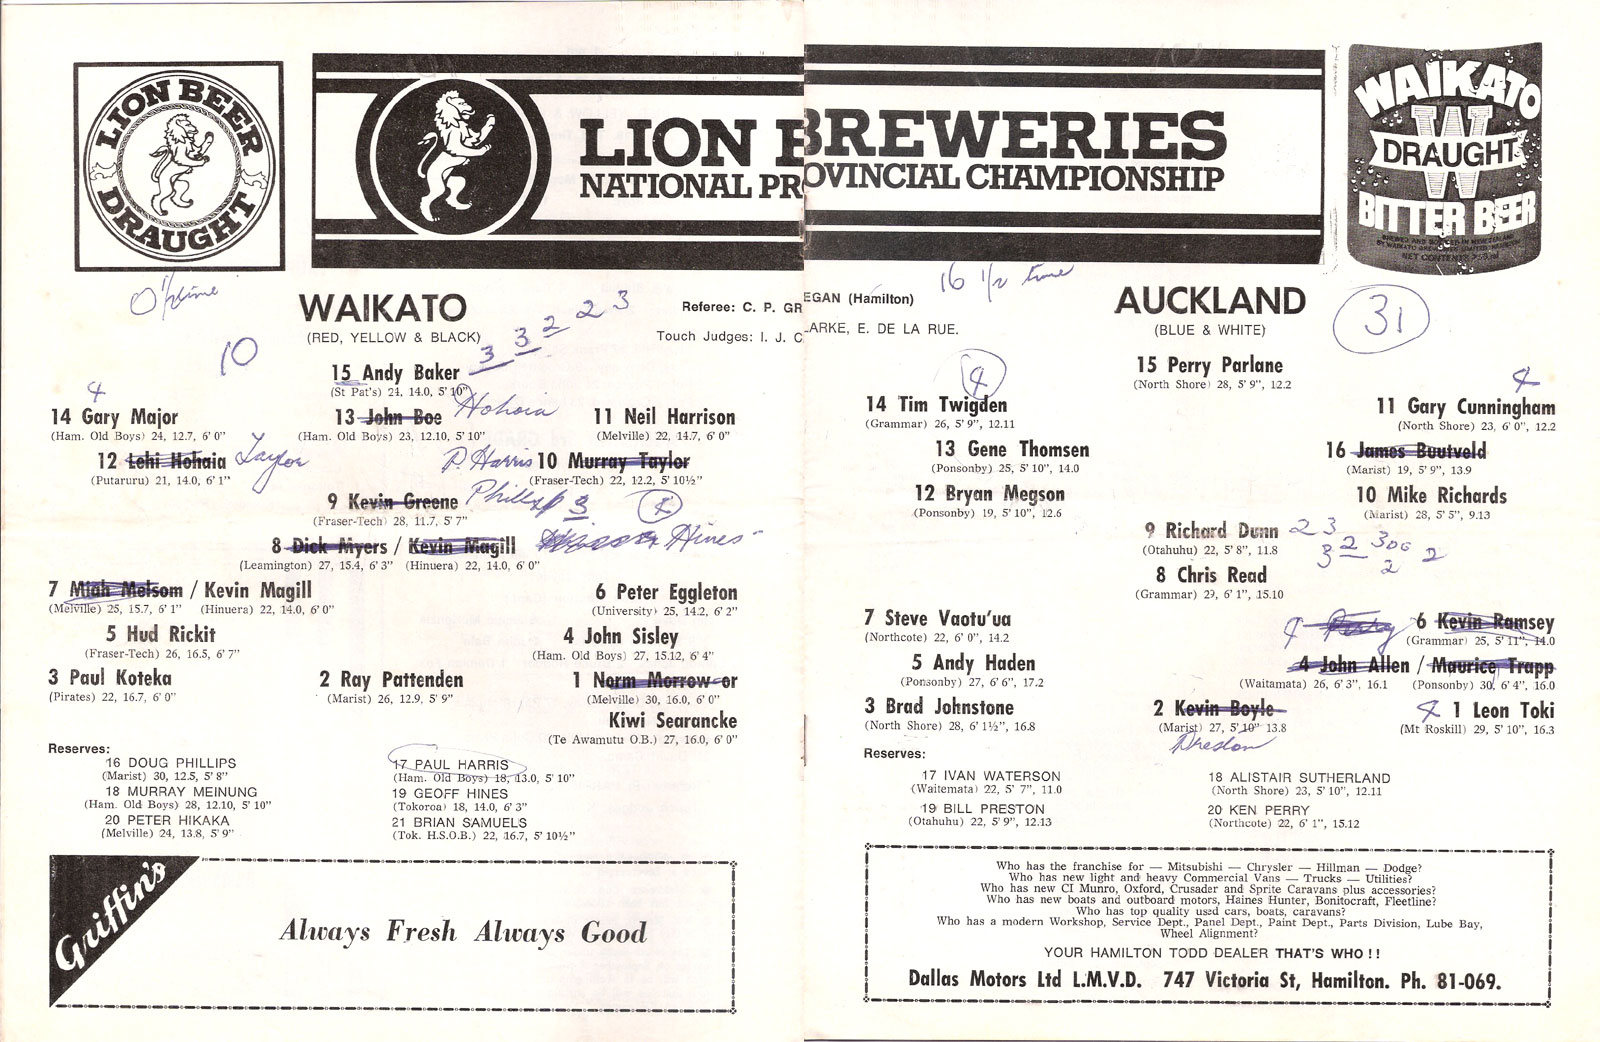 LION BEER
DRAUGHT
LION BREWERIES
NATIONAL PROVINCIAL CHAMPIONSHIP
WAIKATO
W
DRAUGHT
BITTER BEER
0 ½ time
WAIKATO
(RED, YELLOW & BLACK)
10
3 3 2 2 3
Referee: C. P. GREGAN (Hamilton)
Touch Judges: I. J. CLARKE, E. DE LA RUE.
15 Andy Baker
(St Pat's) 24, 14.0, 5' 10"
4
14 Gary Major
(Ham. Old Boys) 24, 12.7, 6' 0"
13 John Boe Hohaia
(Ham. Old Boys) 23, 12.10, 5' 10"
11 Neil Harrison
(Melville) 22, 14.7, 6' 0"
12 Lehi Hohaia Taylor
(Putaruru) 21, 14.0, 6' 1"
P. Harris 10 Murray Taylor
(Fraser-Tech) 22, 12.2, 5' 10½"
9 Kevin Greene Phillips 3
(Fraser-Tech) 28, 11.7, 5' 7"
8 Dick Myers / Kevin Magill Hines
(Leamington) 27, 15.4, 6' 3" (Hinuera) 22, 14.0, 6' 0"
7 Miah Melsom / Kevin Magill
(Melville) 25, 15.7, 6' 1" (Hinuera) 22, 14.0, 6' 0"
6 Peter Eggleton
(University) 25, 14.2, 6' 2"
5 Hud Rickit
(Fraser-Tech) 26, 16.5, 6' 7"
4 John Sisley
(Ham. Old Boys) 27, 15.12, 6' 4"
3 Paul Koteka
(Pirates) 22, 16.7, 6' 0"
2 Ray Pattenden
(Marist) 26, 12.9, 5' 9"
1 Norm Morrow or
(Melville) 30, 16.0, 6' 0"
Kiwi Searancke
(Te Awamutu O.B.) 27, 16.0, 6' 0"
Reserves:
16 DOUG PHILLIPS
(Marist) 30, 12.5, 5' 8"
17 PAUL HARRIS
(Ham. Old Boys) 18, 13.0, 5' 10"
18 MURRAY MEINUNG
(Ham. Old Boys) 28, 12.10, 5' 10"
19 GEOFF HINES
(Tokoroa) 18, 14.0, 6' 3"
20 PETER HIKAKA
(Melville) 24, 13.8, 5' 9"
21 BRIAN SAMUELS
(Tok. H.S.O.B.) 22, 16.7, 5' 10½"
Griffin's
Always Fresh Always Good
16 ½ time
AUCKLAND
(BLUE & WHITE)
31
15 Perry Parlane
(North Shore) 28, 5' 9", 12.2
4
14 Tim Twigden
(Grammar) 26, 5' 9", 12.11
4
11 Gary Cunningham
(North Shore) 23, 6' 0", 12.2
13 Gene Thomsen
(Ponsonby) 25, 5' 10", 14.0
16 James Buutveld
(Marist) 19, 5' 9", 13.9
12 Bryan Megson
(Ponsonby) 19, 5' 10", 12.6
10 Mike Richards
(Marist) 28, 5' 5", 9.13
9 Richard Dunn 2 3
(Otahuhu) 22, 5' 8", 11.8
3 2 3DG 2 2
8 Chris Read
(Grammar) 29, 6' 1", 15.10
7 Steve Vaotu'ua
(Northcote) 22, 6' 0", 14.2
4 Perry 6 Kevin Ramsey
(Grammar) 25, 5' 11" 14.0
5 Andy Haden
(Ponsonby) 27, 6' 6", 17.2
4 John Allen / Maurice Trapp
(Waitemata) 26, 6' 3", 16.1 (Ponsonby) 30, 6' 4", 16.0
3 Brad Johnstone
(North Shore) 28, 6' 1½", 16.8
2 Kevin Boyle
(Marist) 27, 5' 10" 13.8
Preston
4 1 Leon Toki
(Mt Roskill) 29, 5' 10", 16.3
Reserves:
17 IVAN WATERSON
(Waitemata) 22, 5' 7", 11.0
18 ALISTAIR SUTHERLAND
(North Shore) 23, 5' 10", 12.11
19 BILL PRESTON
(Otahuhu) 22, 5' 9", 12.13
20 KEN PERRY
(Northcote) 22, 6' 1", 15.12
Who has the franchise for — Mitsubishi — Chrysler — Hillman — Dodge?
Who has new light and heavy Commercial Vans — Trucks — Utilities?
Who has new CI Munro, Oxford, Crusader and Sprite Caravans plus accessories?
Who has new boats and outboard motors, Haines Hunter, Bonitocraft, Fleetline?
Who has top quality used cars, boats, caravans?
Who has a modern Workshop, Service Dept., Panel Dept., Paint Dept., Parts Division, Lube Bay,
Wheel Alignment?
YOUR HAMILTON TODD DEALER THAT'S WHO !!
Dallas Motors Ltd L.M.V.D. 747 Victoria St, Hamilton. Ph. 81-069.